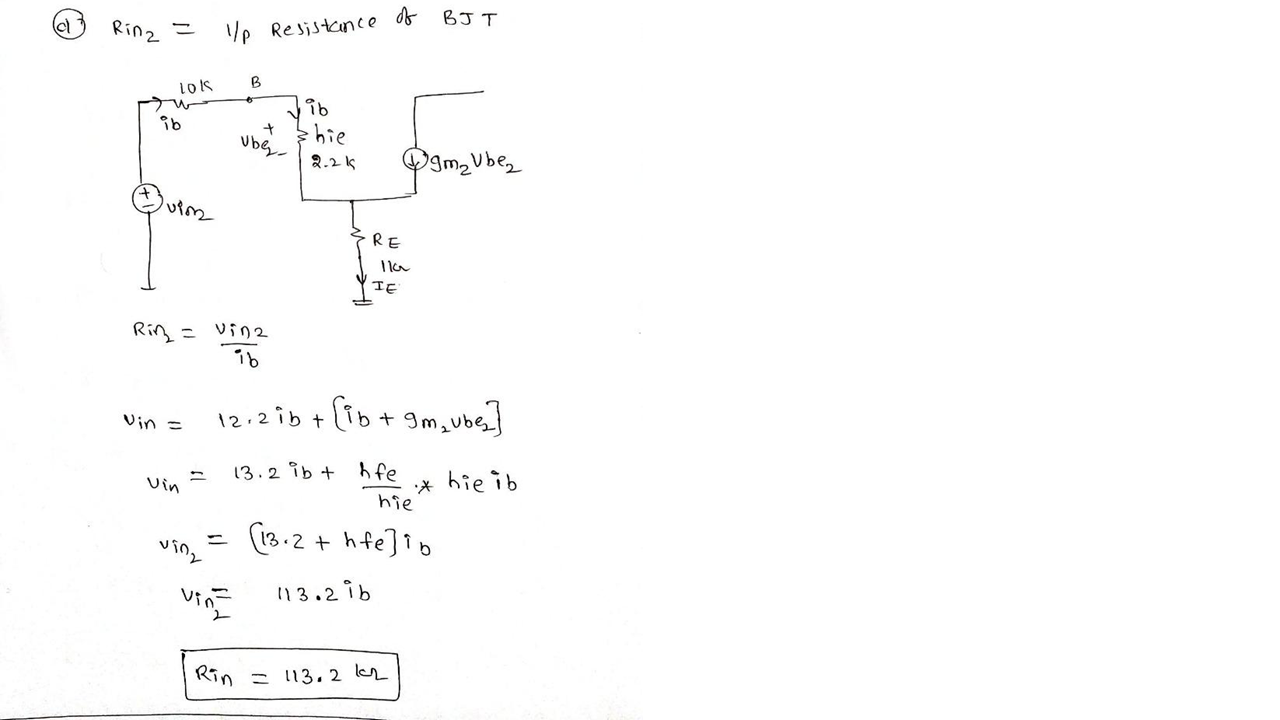 d) Rin2 = i/p Resistance of BJT
10K
B
ib
ib
+
Vbe2
-
hie
2.2K
gm2Vbe2
+
-
Vin2
RE
1kΩ
IE
Rin2 = Vin2/ib
Vin = 12.2 ib + [ib + gm2Vbe2]
Vin = 13.2 ib + hfe/hie * hie ib
Vin2 = (13.2 + hfe] ib
Vin2 = 113.2 ib
Rin = 113.2 kΩ